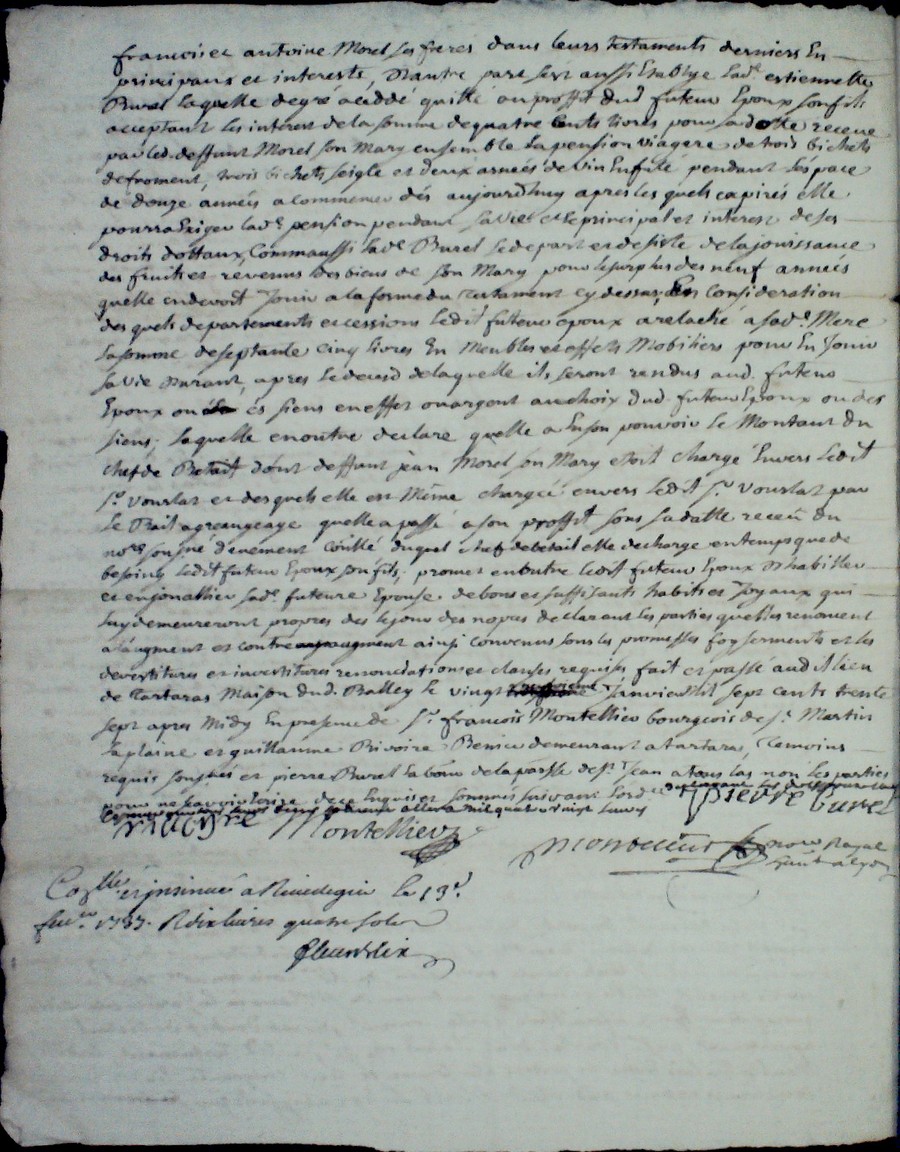 francois et antoine Morel ses freres dans leurs testaments derniers En
principaux et interets, Dautre part sest aussi Etablye lad.e estiennette
Burel laquelle degré acéddé quitté auproffit dud futeur Epoux sonfils
acceptant les interest delasomme dequatre Cents livres pour sadotte receue
parled. deffunt Morel son Mary ensemble lapension viagere detrois bichets
defroment, trois bichets seigle et deux asnées de vin Enfuté pendant Lespace
de douze années acommencer dés aujourdhuy apres les quels expirés elle
pourra Exiger lad.e pension pendant savie et le principal et interest deses
droits dottaux, Commaussi lad.e Burel sedepart et desiste delajouissance
des fruits et revenus des biens de son Mary pour lesurplus des neuf années
quelle endevoit Jouir alaforme du testament cy dessus, En Consideration
des quels departements et cessions ledit futeur epoux arelaché a sad.e Mere
lasomme deseptante cinq livres En Meubles et effets Mobiliers pour En Jouir
savie Durant, apres ledeced delaquelle ils seront rendus aud. futeur
Epoux ou és siens eneffet ouargent auchoix dud. futeur Epoux ou des
siens; laquelle enoutre declare quelle a Enson pouvoir le Montant du
chef de Betail dont deffunt jean Morel son Mary etoit chargé Envers ledit
S.r Vourlat et des quels elle est Même chargée envers ledit S.r Vourlat par
le Bail agreangeage quelle a passé a son proffit sous sadatte receu du
no.re sousné duement Collé duquel chef debetail elle decharge entempsquede
besoins ledit futeur Epoux sonfils; promet enoutre ledit futeur Epoux Dhabiller
et enjouallier sad.e future Epouse debons et suffisants habits et Joyaux qui
luy demeureront propres des lejour des nopces declarant les parties quelles renoncent
alaugment et contreaugment ainsi Convenus sous les promesses foy serments et les
devestitures et investitures renonciations et clauses requises fait et passé audit lieu
de Tartaras Maison dud. Balley le vingt Janvier Mil sept cents trente
sept apres Midy En presence de S.r francois Montellier bourgeois de S.t Martin
laplaine et guillaume Rivoire Benier demeurant a tartaras, Temoins
requis sousnés et pierre Burel laboureur delaparoisse de S.t Jean non les parties
pour ne scavoir Ecrire de ce Enquis et Sommés suivant lord.ce
pierre burel
Montellier
no.re Royal
et insinué a Rivedegier le 19.e
1737. R dix livres quatre sols